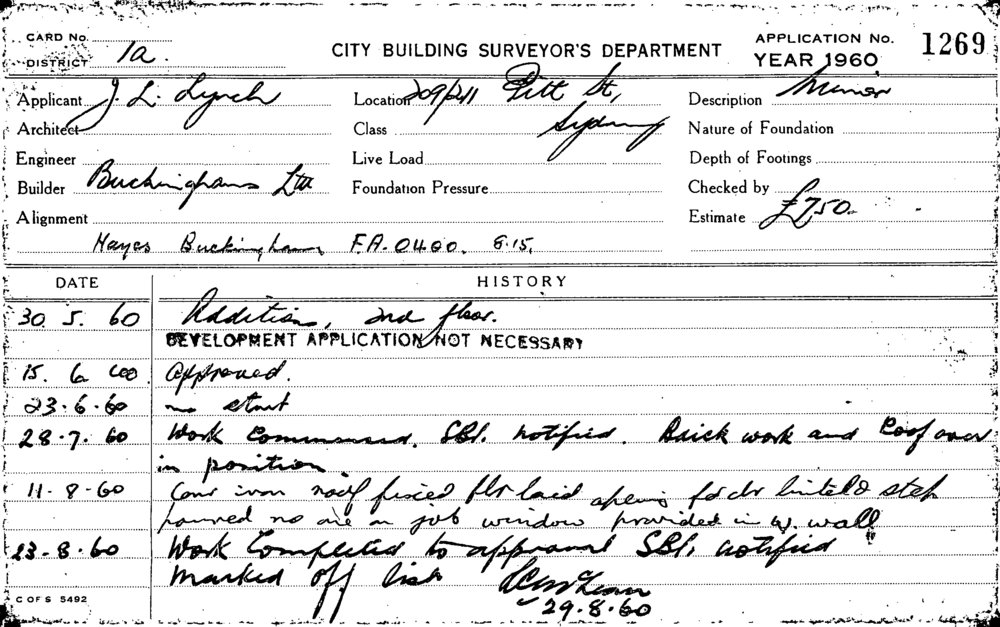 CARD No.
DISTRICT 1a.
CITY BUILDING SURVEYOR'S DEPARTMENT
APPLICATION No. 1269
YEAR 1960
Applicant J. L. Lynch
Location 209/211 Pitt St, Sydney
Description Minor
Architect
Class
Nature of Foundation
Engineer
Live Load
Depth of Footings
Builder Buckinghams Ltd
Foundation Pressure
Checked by
Alignment
Estimate £750.
Hayes Buckinghams FA.0400. 8.15.
DATE HISTORY
30. 5. 60 Additions, 2nd floor.
DEVELOPMENT APPLICATION NOT NECESSARY
15. 6 60 Approved.
23.6.60 no start
28.7.60 Work Commenced. SBI. notified. Brick work and Roof over
in position.
11-8-60 iron roof fixed flr laid for dr lintel & step
poured no one on job window provided in W. wall
23.8.60 Work Completed to approval SBI. notified
Marked off list
29.8.60
C OF S 5492